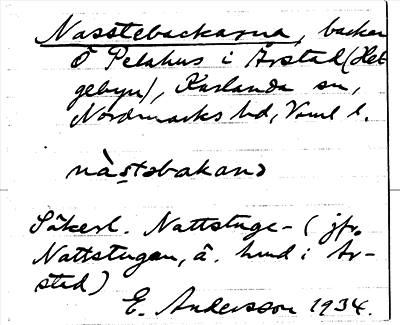 Nasstebackarna, backar
Ö Pelahus i Årstad (Hel-
gebyn), Karlanda sn,
Nordmarks hd, Vrml l.
nàstəbakanɔ
Säkerl. Nattstuge- (jfr.
Nattstugan, ä. hmd i År-
stad)
E. Andersson 1934.